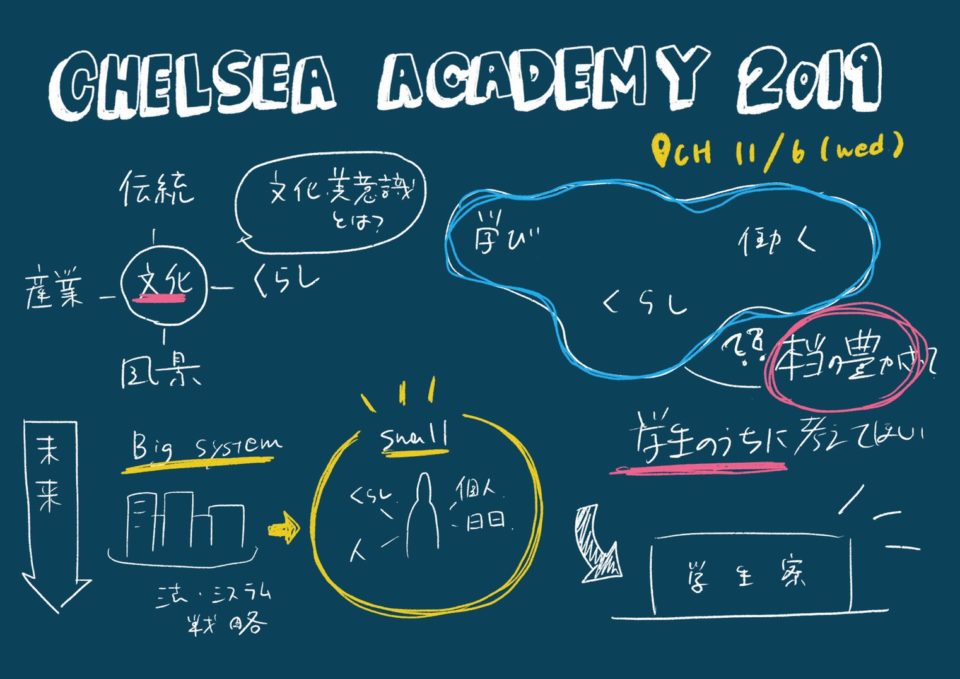 CHELSEA ACADEMY 2019
CH 11/6 (wed)
伝統
文化・美意識
とは?
産業
文化
くらし
風景
学び
働く
くらし
??
本当の豊かさって?
学生のうちに考えてほしい
未来
Big system
法・システム
戦略
small
くらし
個人
人
日日
学生寮